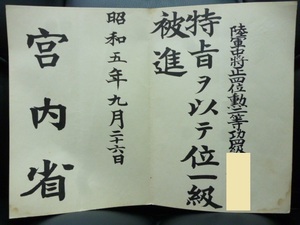 陸軍中將正四位勳二等功四級
特旨ヲ以テ位一級
被進
昭和五年九月二十六日
宮内省